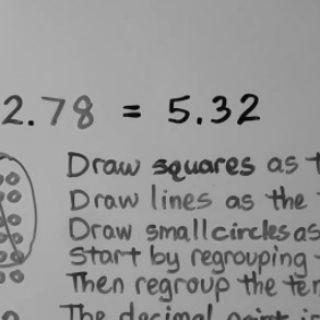 2.78 = 5.32
Draw squares as
Draw lines as the
Draw small circles as
Start by regrouping
Then regroup the
The decimal